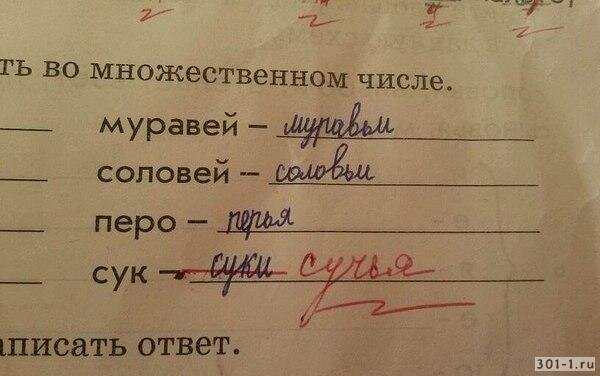 ть во множественном числе.
муравей – муравьи
соловей – соловьи
перо – перья
сук – суки сучья
аписать ответ.
301-1.ru